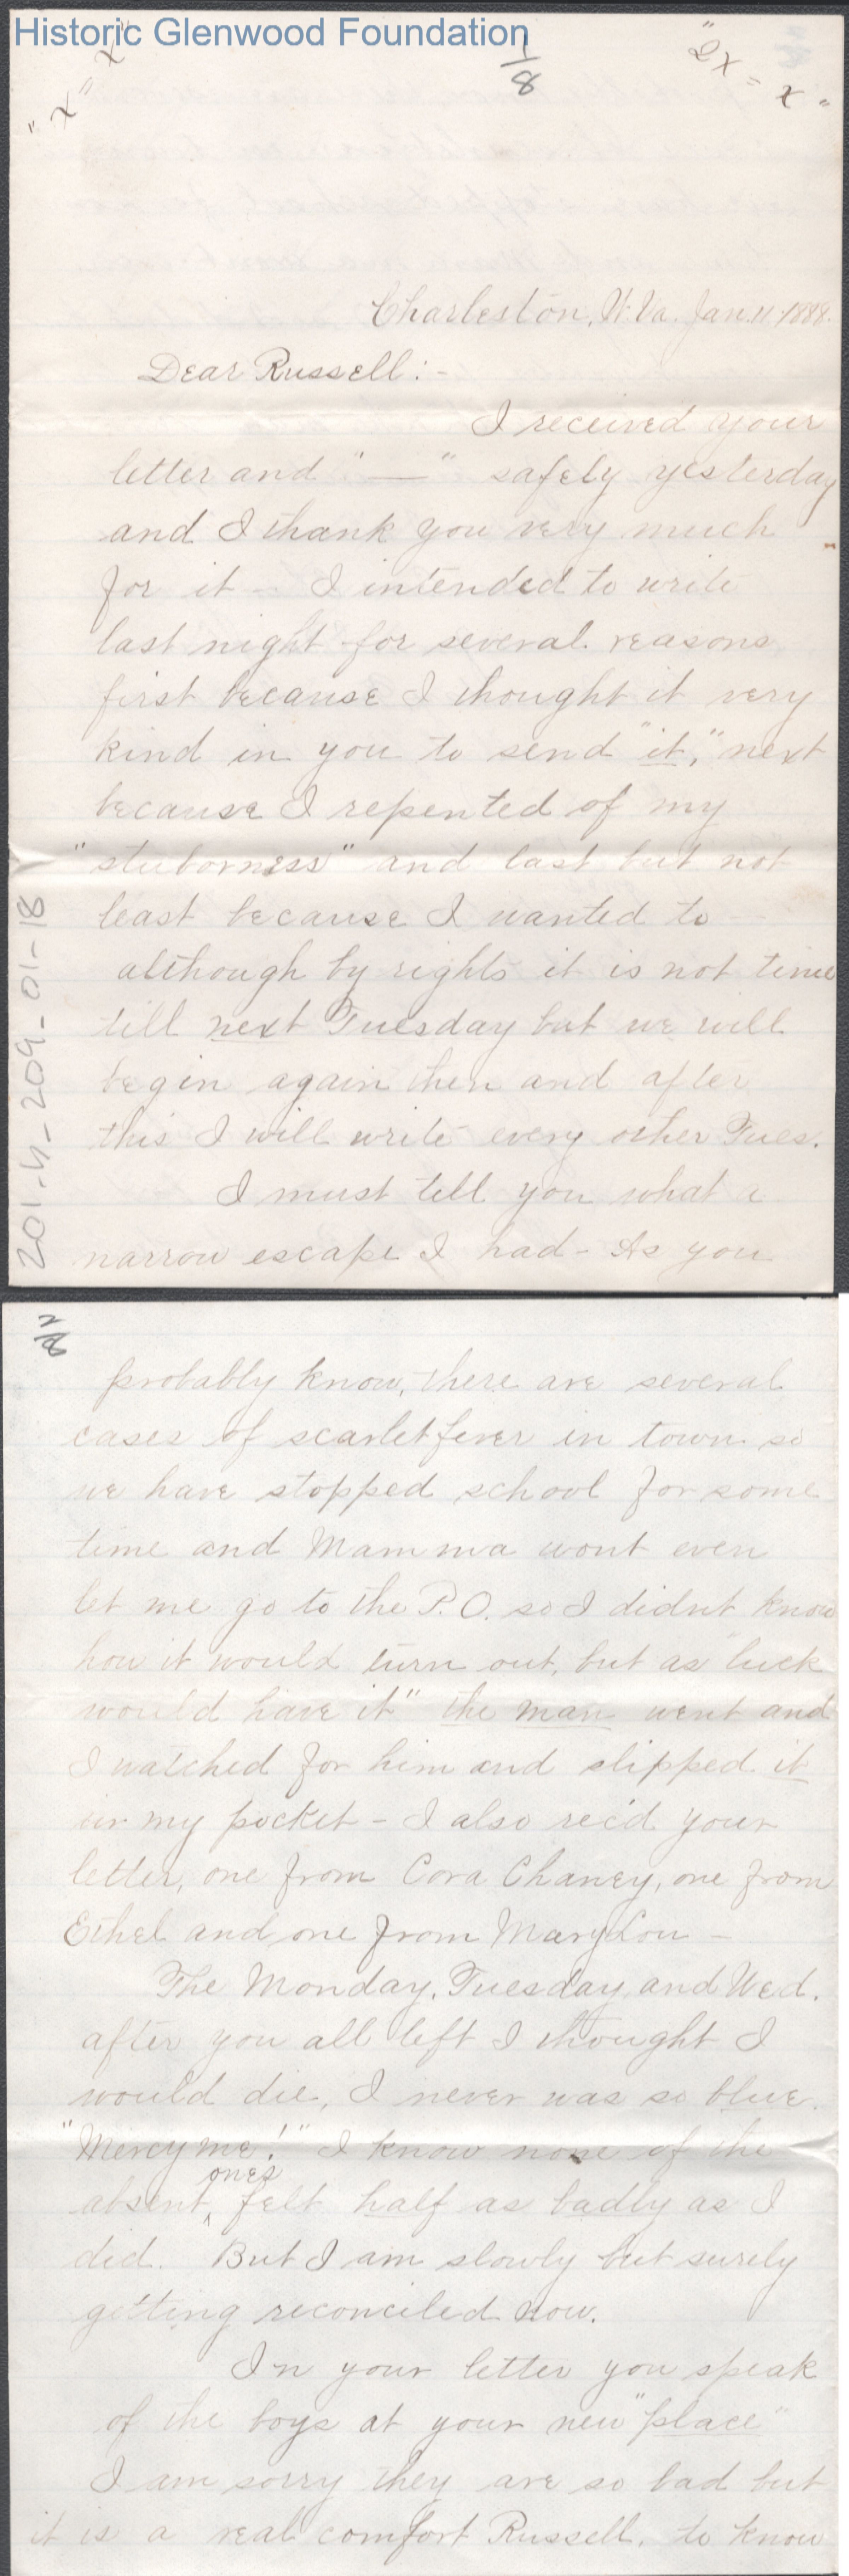 Historic Glenwood Foundation
"X" X"
1/8
"2X" = X"
Charleston, W. Va. Jan. 11. 1888.
Dear Russell:-
I received your
letter and "—" safely yesterday
and I thank you very much
for it - I intended to write
last night for several reasons,
first because I thought it very
kind in you to send "it," next
because I repented of my
"stuborness" and last but not
least because I wanted to -
although by rights it is not time
till next Tuesday but we will
begin again then and after
this I will write every other Tues.
I must tell you what a
narrow escape I had - As you
201-4-209-01-18
2/8
probably know, there are several
cases of scarletfever in town so
we have stopped school for some
time and Mamma wont even
let me go to the P.O. so I didn't know
how it would turn out, but as "luck
would have it" the man went and
I watched for him and slipped it
in my pocket - I also rec'd your
letter, one from Cora Chaney, one from
Ethel and one from Mary Lou -
The Monday, Tuesday, and Wed.
after you all left I thought I
would die, I never was so blue.
"Mercy me!" I know none of the
absent ones felt half as badly as I
did. But I am slowly but surely
getting reconciled now.
In your letter you speak
of the boys at your new "place"
I am sorry they are so bad but
it is a real comfort Russell, to know